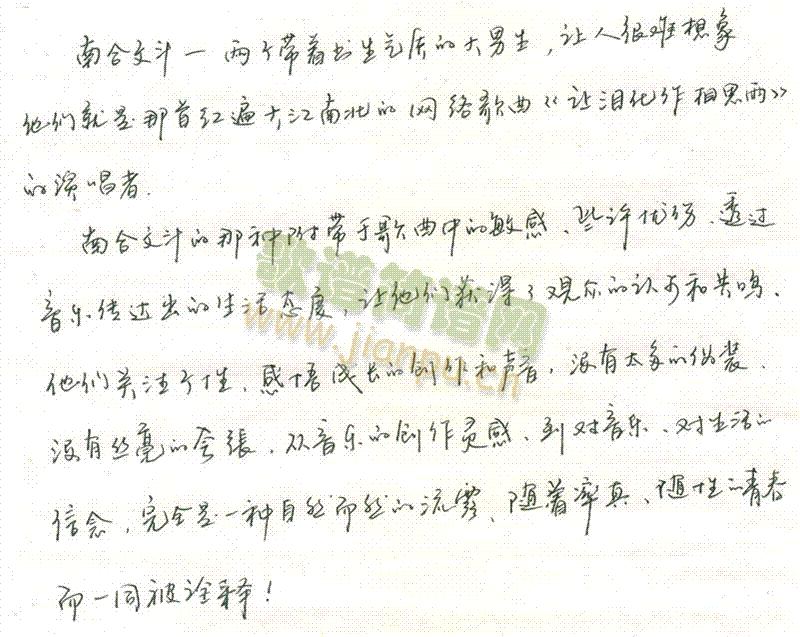 南合文斗一两个带着书生气质的大男生，让人很难想象
他们就是那首红遍大江南北的网络歌曲《让泪化作相思雨》
的演唱者.
南合文斗的那种附带于歌曲中的敏感、些许忧伤、透过
音乐传达出的生活态度，让他们获得了观众的认可和共鸣、
他们关注个性、感悟成长的创作和声音，没有太多的伪装.
没有丝毫的夸張、从音乐的创作灵感、到对音乐、对生活的
信念，完全是一种自然而然的流露、随着率真、随性的青春
而一同被诠释！
歌谱简谱网
www.jianpu.cn